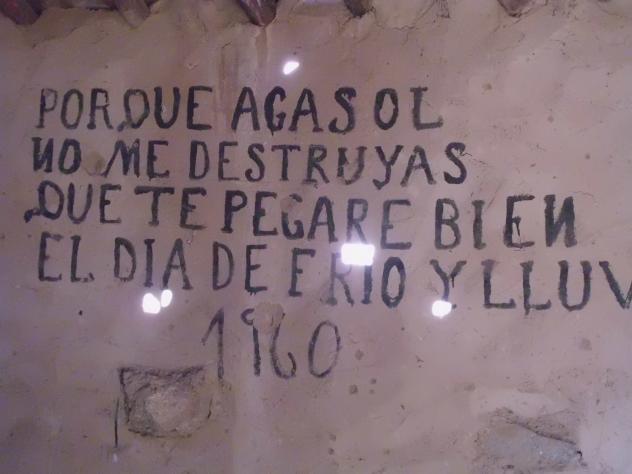 PORQUE AGASOL
NO ME DESTRUYAS
QUE TE PEGARE BIEN
EL DIA DE FRIO Y LLUV
1960